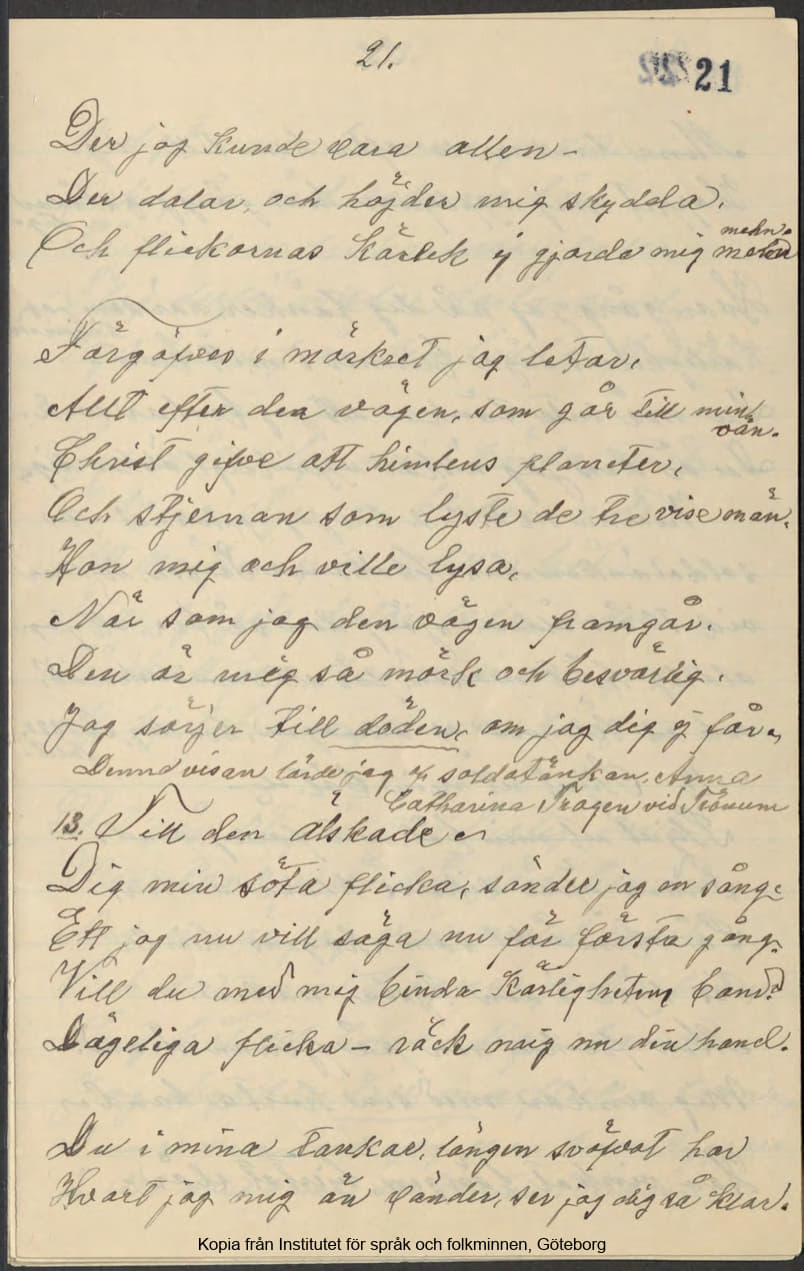 21.
21
Der jag kunde vara allen –
Der dalar, och höjder mig skydda.
Och flickornas kärlek ej gjorde mig
mehn.
Förgöfves i mörkret jag letar,
Allt efter den vägen, som går till min
vän.
Christ gifve att himlens planeter,
Och stjernan som lyste de tre vise män.
Hon mig och ville lysa,
När som jag den vägen framgår.
Den är mig så mörk och besvärlig.
Jag sörjer till döden, om jag dig ej får.
Denna visan lärde jag af soldatänkan, Anna
Catharina Tragen vid
13. Till den älskade.
Dig min söta flicka, sänder jag en sång.
Ett jag nu vill säga nu för första gång.
Vill du med mig binda Kärlighetens band?
Dägeliga flicka – räck mig nu din hand.
Du i mina tankar, längen sväfvat har
Hvart jag mig än vänder, ser jag dig så klar.
Kopia från Institutet för språk och folkminnen, Göteborg